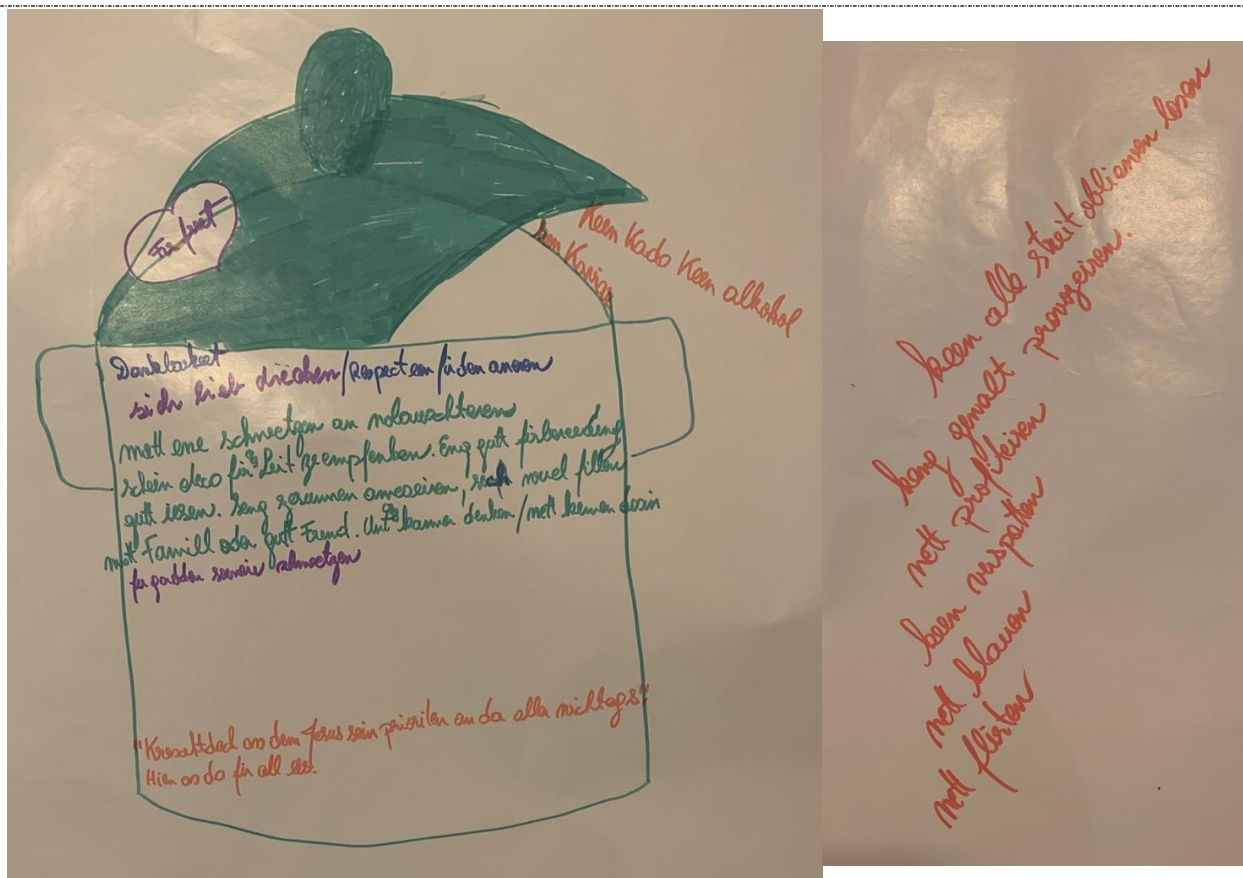 Fir fest
Keen Kado Keen alkohol
keen Kaviar
Dankbarkeet
sich lieb drécken/Respect een fir den aneren
matt ene schwetzen an nolauschteren
schein deco fir Leit ze empfenken. Eng gutt firbereedung
gutt iessen. Seng zesummen ameseiren, sech wuel fillen
matt Famill oder gutt Frend. Un kanner denken/nett leemen
fir padden schwetzen
dem Jesus sein prioriteit an da alla nichtegs"
Hien as do fir all
keen ale streit oblieween losen
keng gewalt provozeiren.
nett profiteiren
keen verspäten
nett klauen
nett flirten